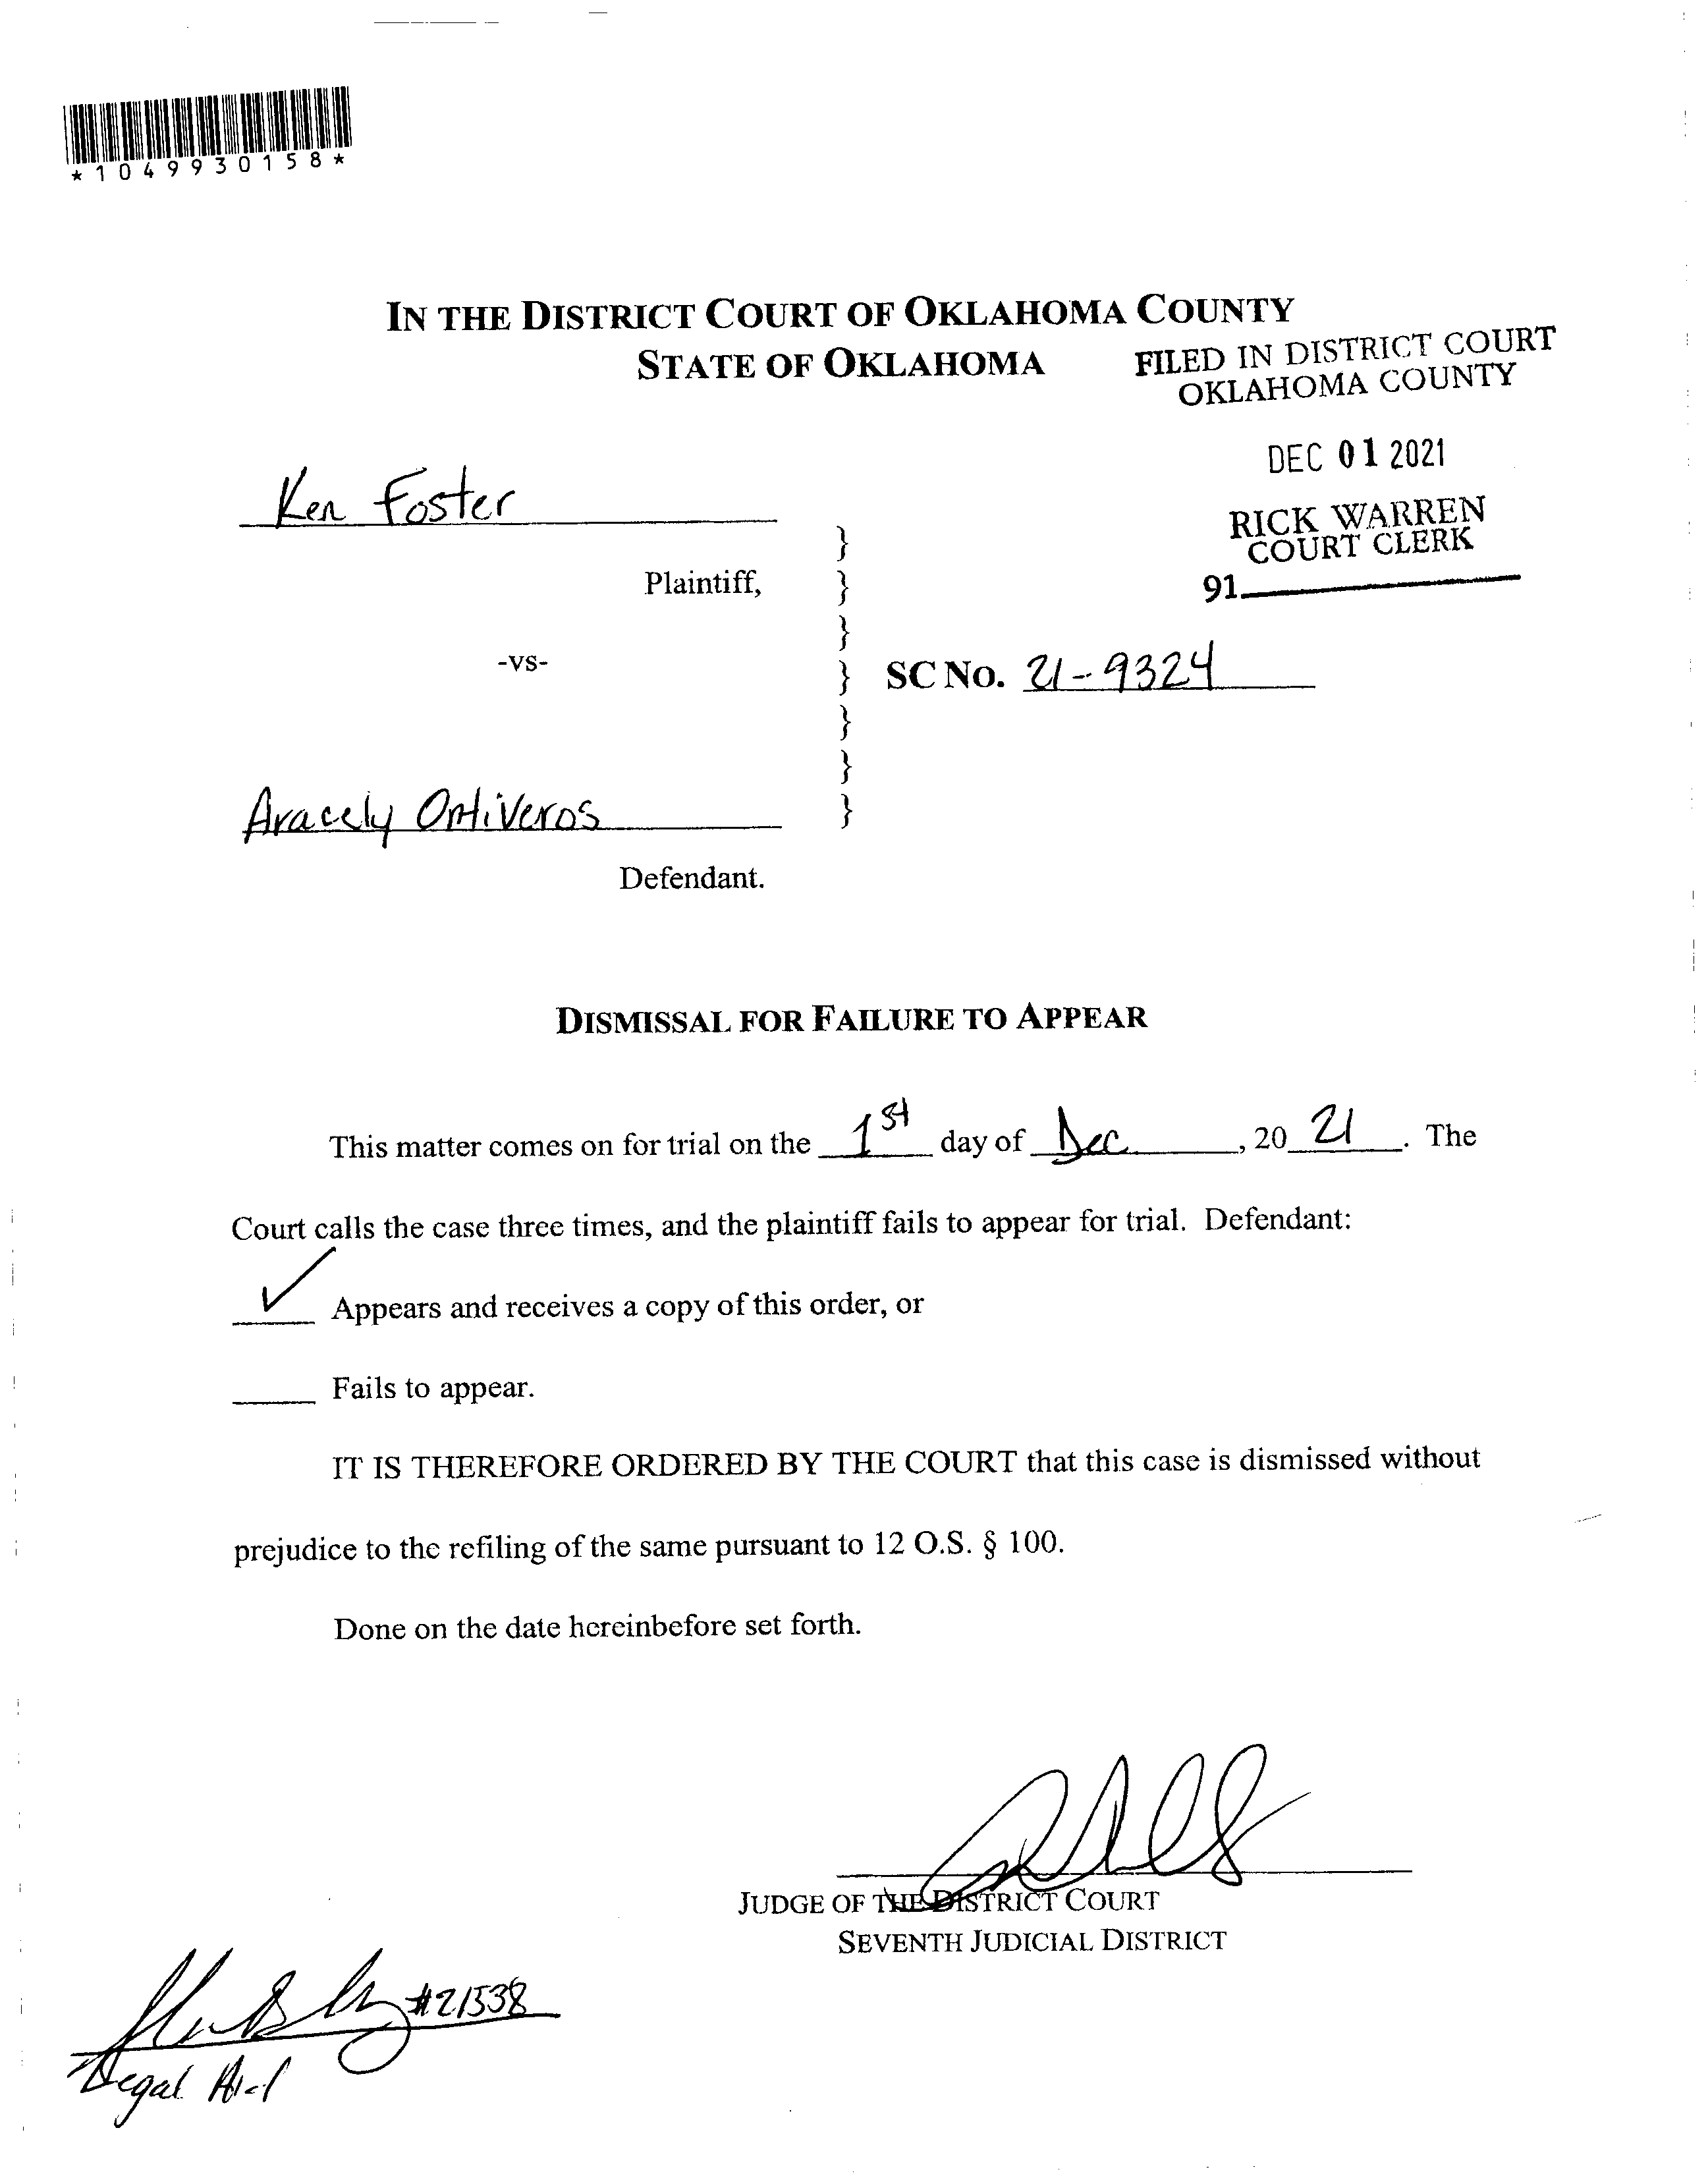 *1049930158*
IN THE DISTRICT COURT OF OKLAHOMA COUNTY
STATE OF OKLAHOMA
FILED IN DISTRICT COURT
OKLAHOMA COUNTY
DEC 01 2021
RICK WARREN
COURT CLERK
91
Ken Foster
}
Plaintiff, }
}
-vs- } SC NO. 21-9324
}
}
Aracely Ontiveros }
Defendant.
DISMISSAL FOR FAILURE TO APPEAR
This matter comes on for trial on the 1st day of Dec, 20 21. The
Court calls the case three times, and the plaintiff fails to appear for trial. Defendant:
✓ Appears and receives a copy of this order, or
Fails to appear.
IT IS THEREFORE ORDERED BY THE COURT that this case is dismissed without
prejudice to the refiling of the same pursuant to 12 O.S. § 100.
Done on the date hereinbefore set forth.
JUDGE OF THE DISTRICT COURT
SEVENTH JUDICIAL DISTRICT
#21538
Legal Aid